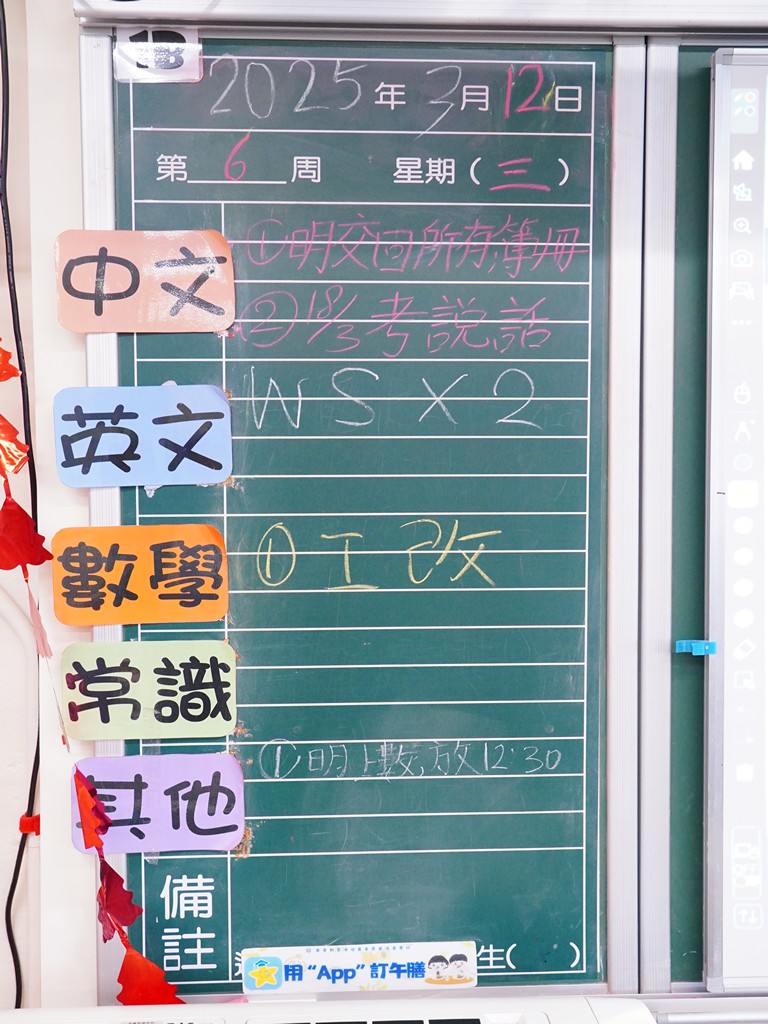 1B
2025年3月12日
第6周 星期(三)
中文
①明交回所有簿冊
②18/3考說話
英文
WS×2
數學
①工改
常識
其他
①明上數,放12:30
備註
生( )
用“App”訂午膳